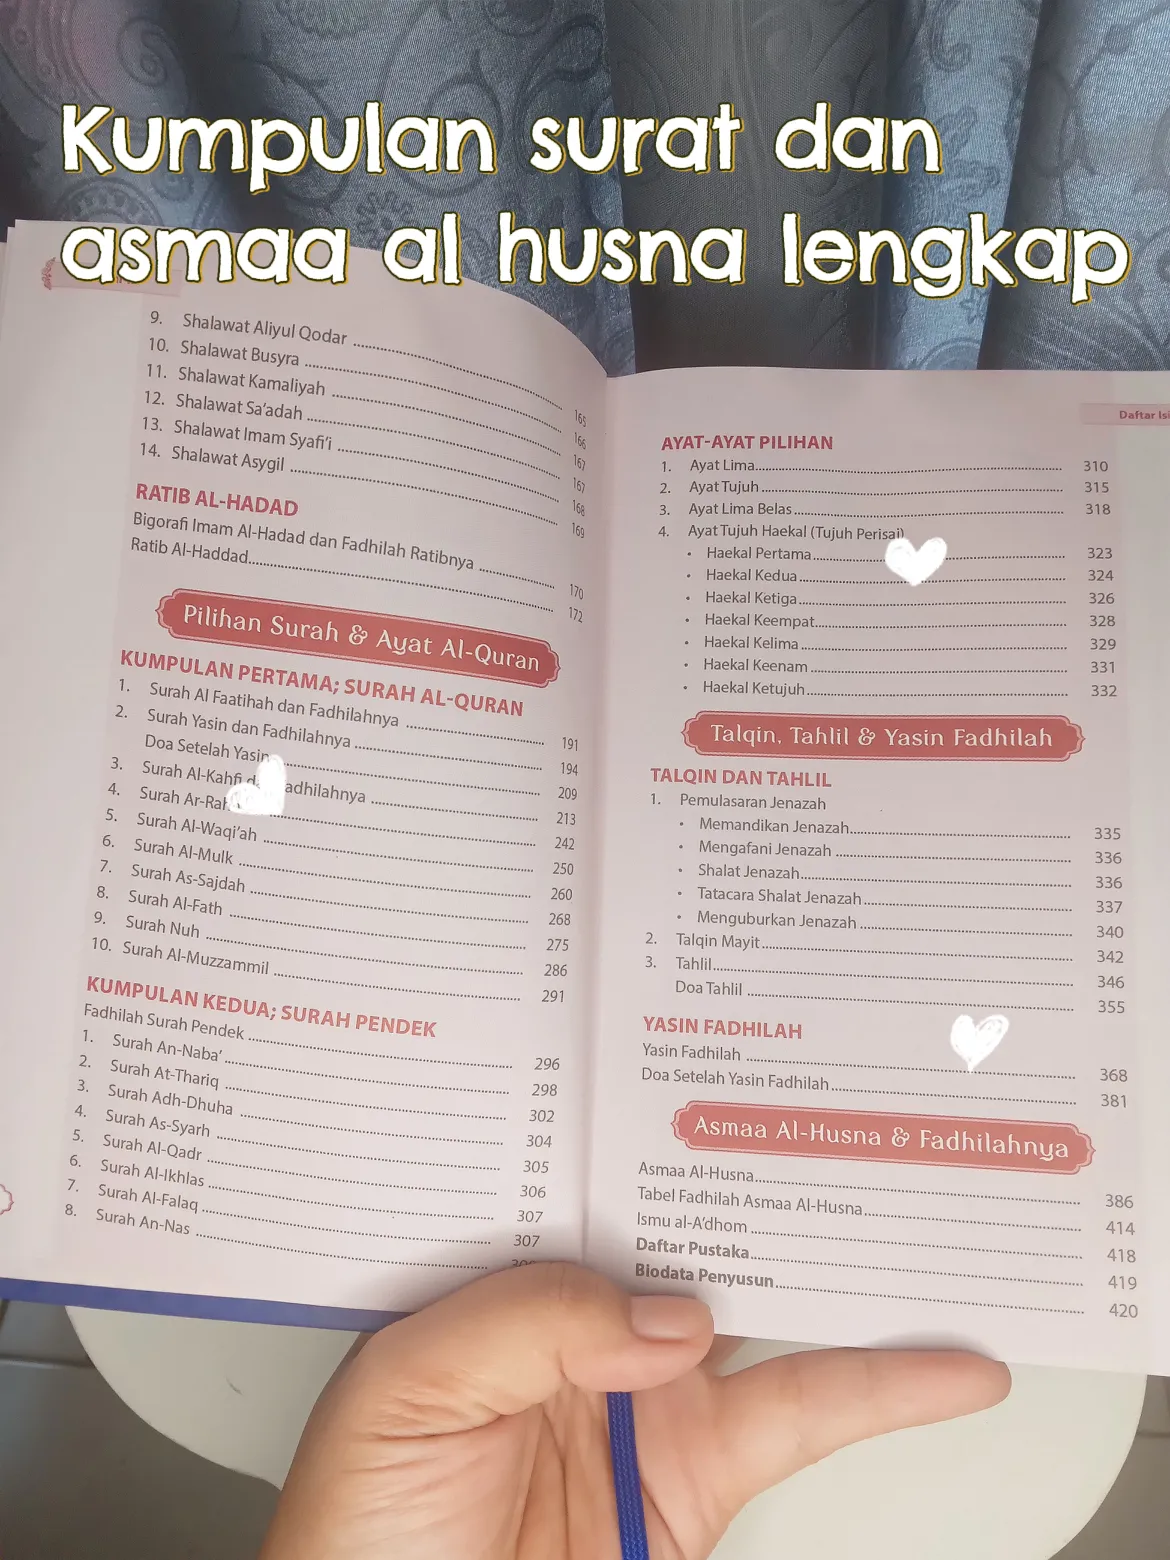 Kumpulan surat dan
asmaa al husna lengkap
9. Shalawat Aliyul Qodar 165
10. Shalawat Busyra 166
11. Shalawat Kamaliyah 167
12. Shalawat Sa'adah 167
13. Shalawat Imam Syafi'i 168
14. Shalawat Asygil 169
RATIB AL-HADAD
Bigorafi Imam Al-Hadad dan Fadhilah Ratibnya 170
Ratib Al-Haddad 172
Pilihan Surah & Ayat Al-Quran
KUMPULAN PERTAMA; SURAH AL-QURAN
1. Surah Al Faatihah dan Fadhilahnya 191
2. Surah Yasin dan Fadhilahnya 194
Doa Setelah Yasin 209
3. Surah Al-Kahfi 213
4. Surah 242
5. Surah Al-Waqi'ah 250
6. Surah Al-Mulk 260
7. Surah As-Sajdah 268
8. Surah Al-Fath 275
9. Surah Nuh 286
10. Surah Al-Muzzammil 291
KUMPULAN KEDUA; SURAH PENDEK
Fadhilah Surah Pendek 296
1. Surah An-Naba' 298
2. Surah At-Thariq 302
3. Surah Adh-Dhuha 304
4. Surah As-Syarh 305
5. Surah Al-Qadr 306
6. Surah Al-Ikhlas 307
7. Surah Al-Falaq 307
8. Surah An-Nas
Daftar Isi
AYAT-AYAT PILIHAN
1. Ayat Lima 310
2. Ayat Tujuh 315
3. Ayat Lima Belas 318
4. Ayat Tujuh Haekal (Tujuh Perisai)
• Haekal Pertama 323
• Haekal Kedua 324
• Haekal Ketiga 326
• Haekal Keempat 328
• Haekal Kelima 329
• Haekal Keenam 331
• Haekal Ketujuh 332
Talqin, Tahlil & Yasin Fadhilah
TALQIN DAN TAHLIL
1. Pemulasaran Jenazah
• Memandikan Jenazah 335
• Mengafani Jenazah 336
• Shalat Jenazah 336
• Tatacara Shalat Jenazah 337
• Menguburkan Jenazah 340
2. Talqin Mayit 342
3. Tahlil 346
Doa Tahlil 355
YASIN FADHILAH
Yasin Fadhilah 368
Doa Setelah Yasin Fadhilah 381
Asmaa Al-Husna & Fadhilahnya
Asmaa Al-Husna 386
Tabel Fadhilah Asmaa Al-Husna 414
Ismu al-A'dhom 418
Daftar Pustaka 419
Biodata Penyusun 420